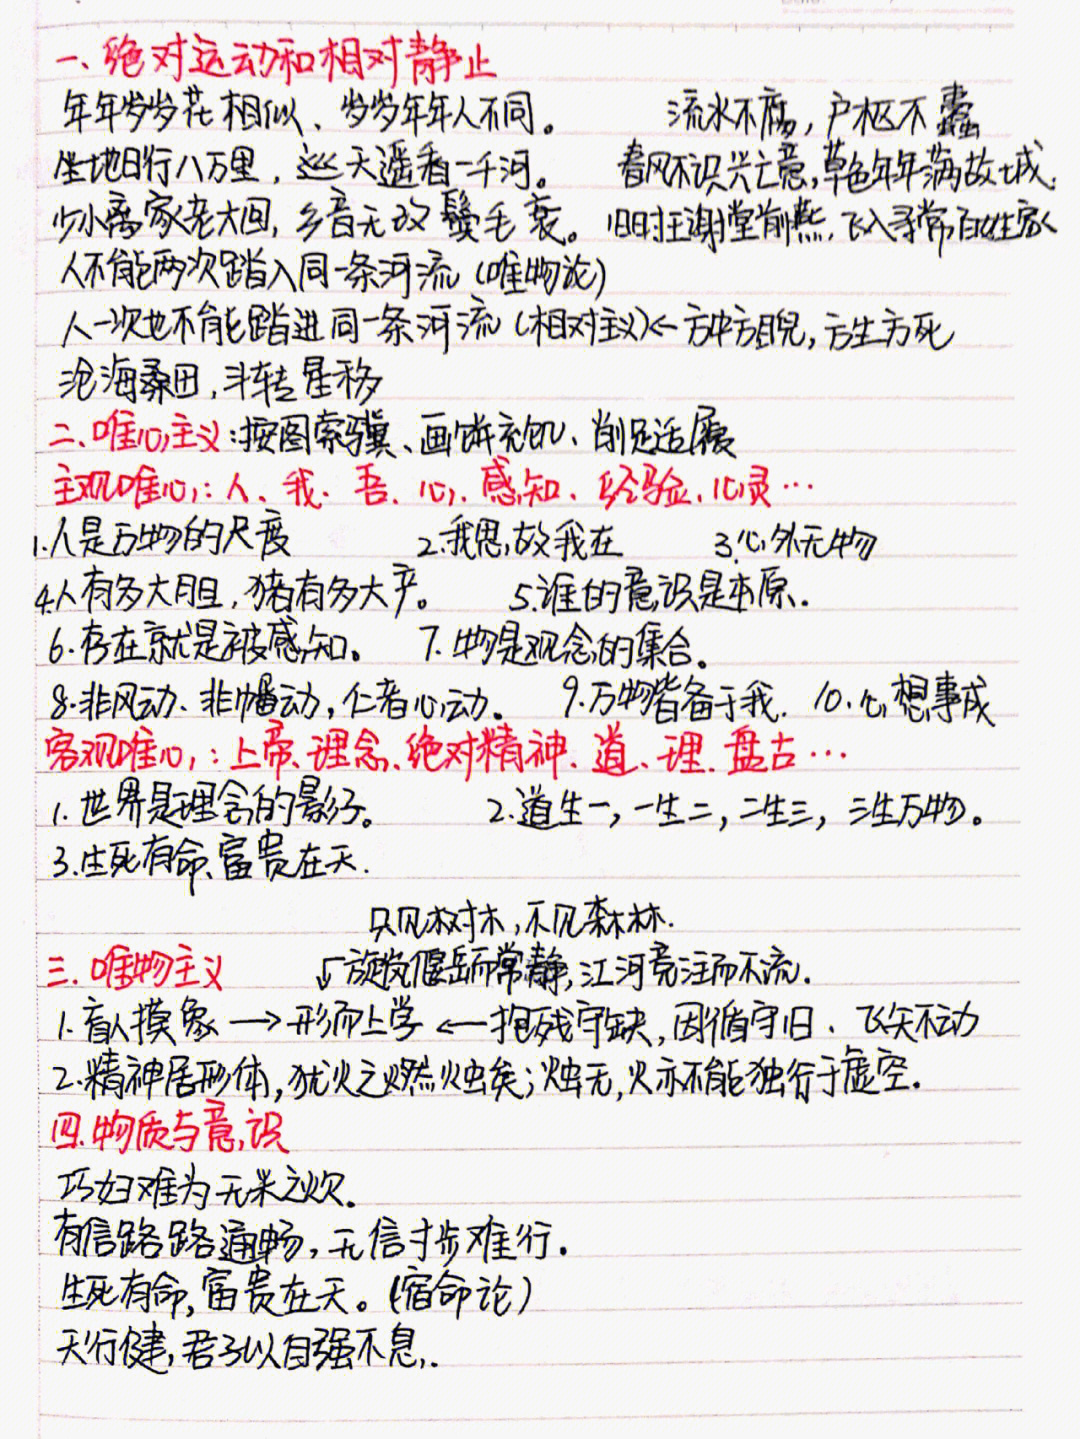 一、绝对运动和相对静止
年年岁岁花相似、岁岁年年人不同。 流水不腐，户枢不蠹
坐地日行八万里，巡天遥看一千河。 春风不识兴亡意，草色年年满故城.
少小离家老大回，乡音无改鬓毛衰。 旧时王谢堂前燕，飞入寻常百姓家
人不能两次踏入同一条河流（唯物论）
人一次也不能踏进同一条河流（相对主义）← 方中方睨，方生方死
沧海桑田，斗转星移
二、唯心主义：按图索骥、画饼充饥、削足适履
主观唯心：人、我、吾、心、感知、经验、心灵…
1.人是万物的尺度 2.我思故我在 3.心外无物
4.人有多大胆，猪有多大产。 5.谁的意识是本原.
6.存在就是被感知。 7.物是观念的集合。
8.非风动、非幡动，仁者心动。 9.万物皆备于我. 10.心想事成
客观唯心：上帝、理念、绝对精神、道、理、盘古…
1.世界是理念的影子。 2.道生一，一生二，二生三，三生万物。
3.生死有命、富贵在天.
只见树木，不见森林.
三、唯物主义 ↙旋岚偃岳而常静，江河竞注而不流.
1.盲人摸象 → 形而上学 ← 抱残守缺，因循守旧、飞矢不动
2.精神居形体，犹火之燃烛矣；烛无，火亦不能独行于虚空.
四.物质与意识
巧妇难为无米之炊.
有信路路通畅，无信寸步难行.
生死有命，富贵在天。（宿命论）
天行健，君子以自强不息.